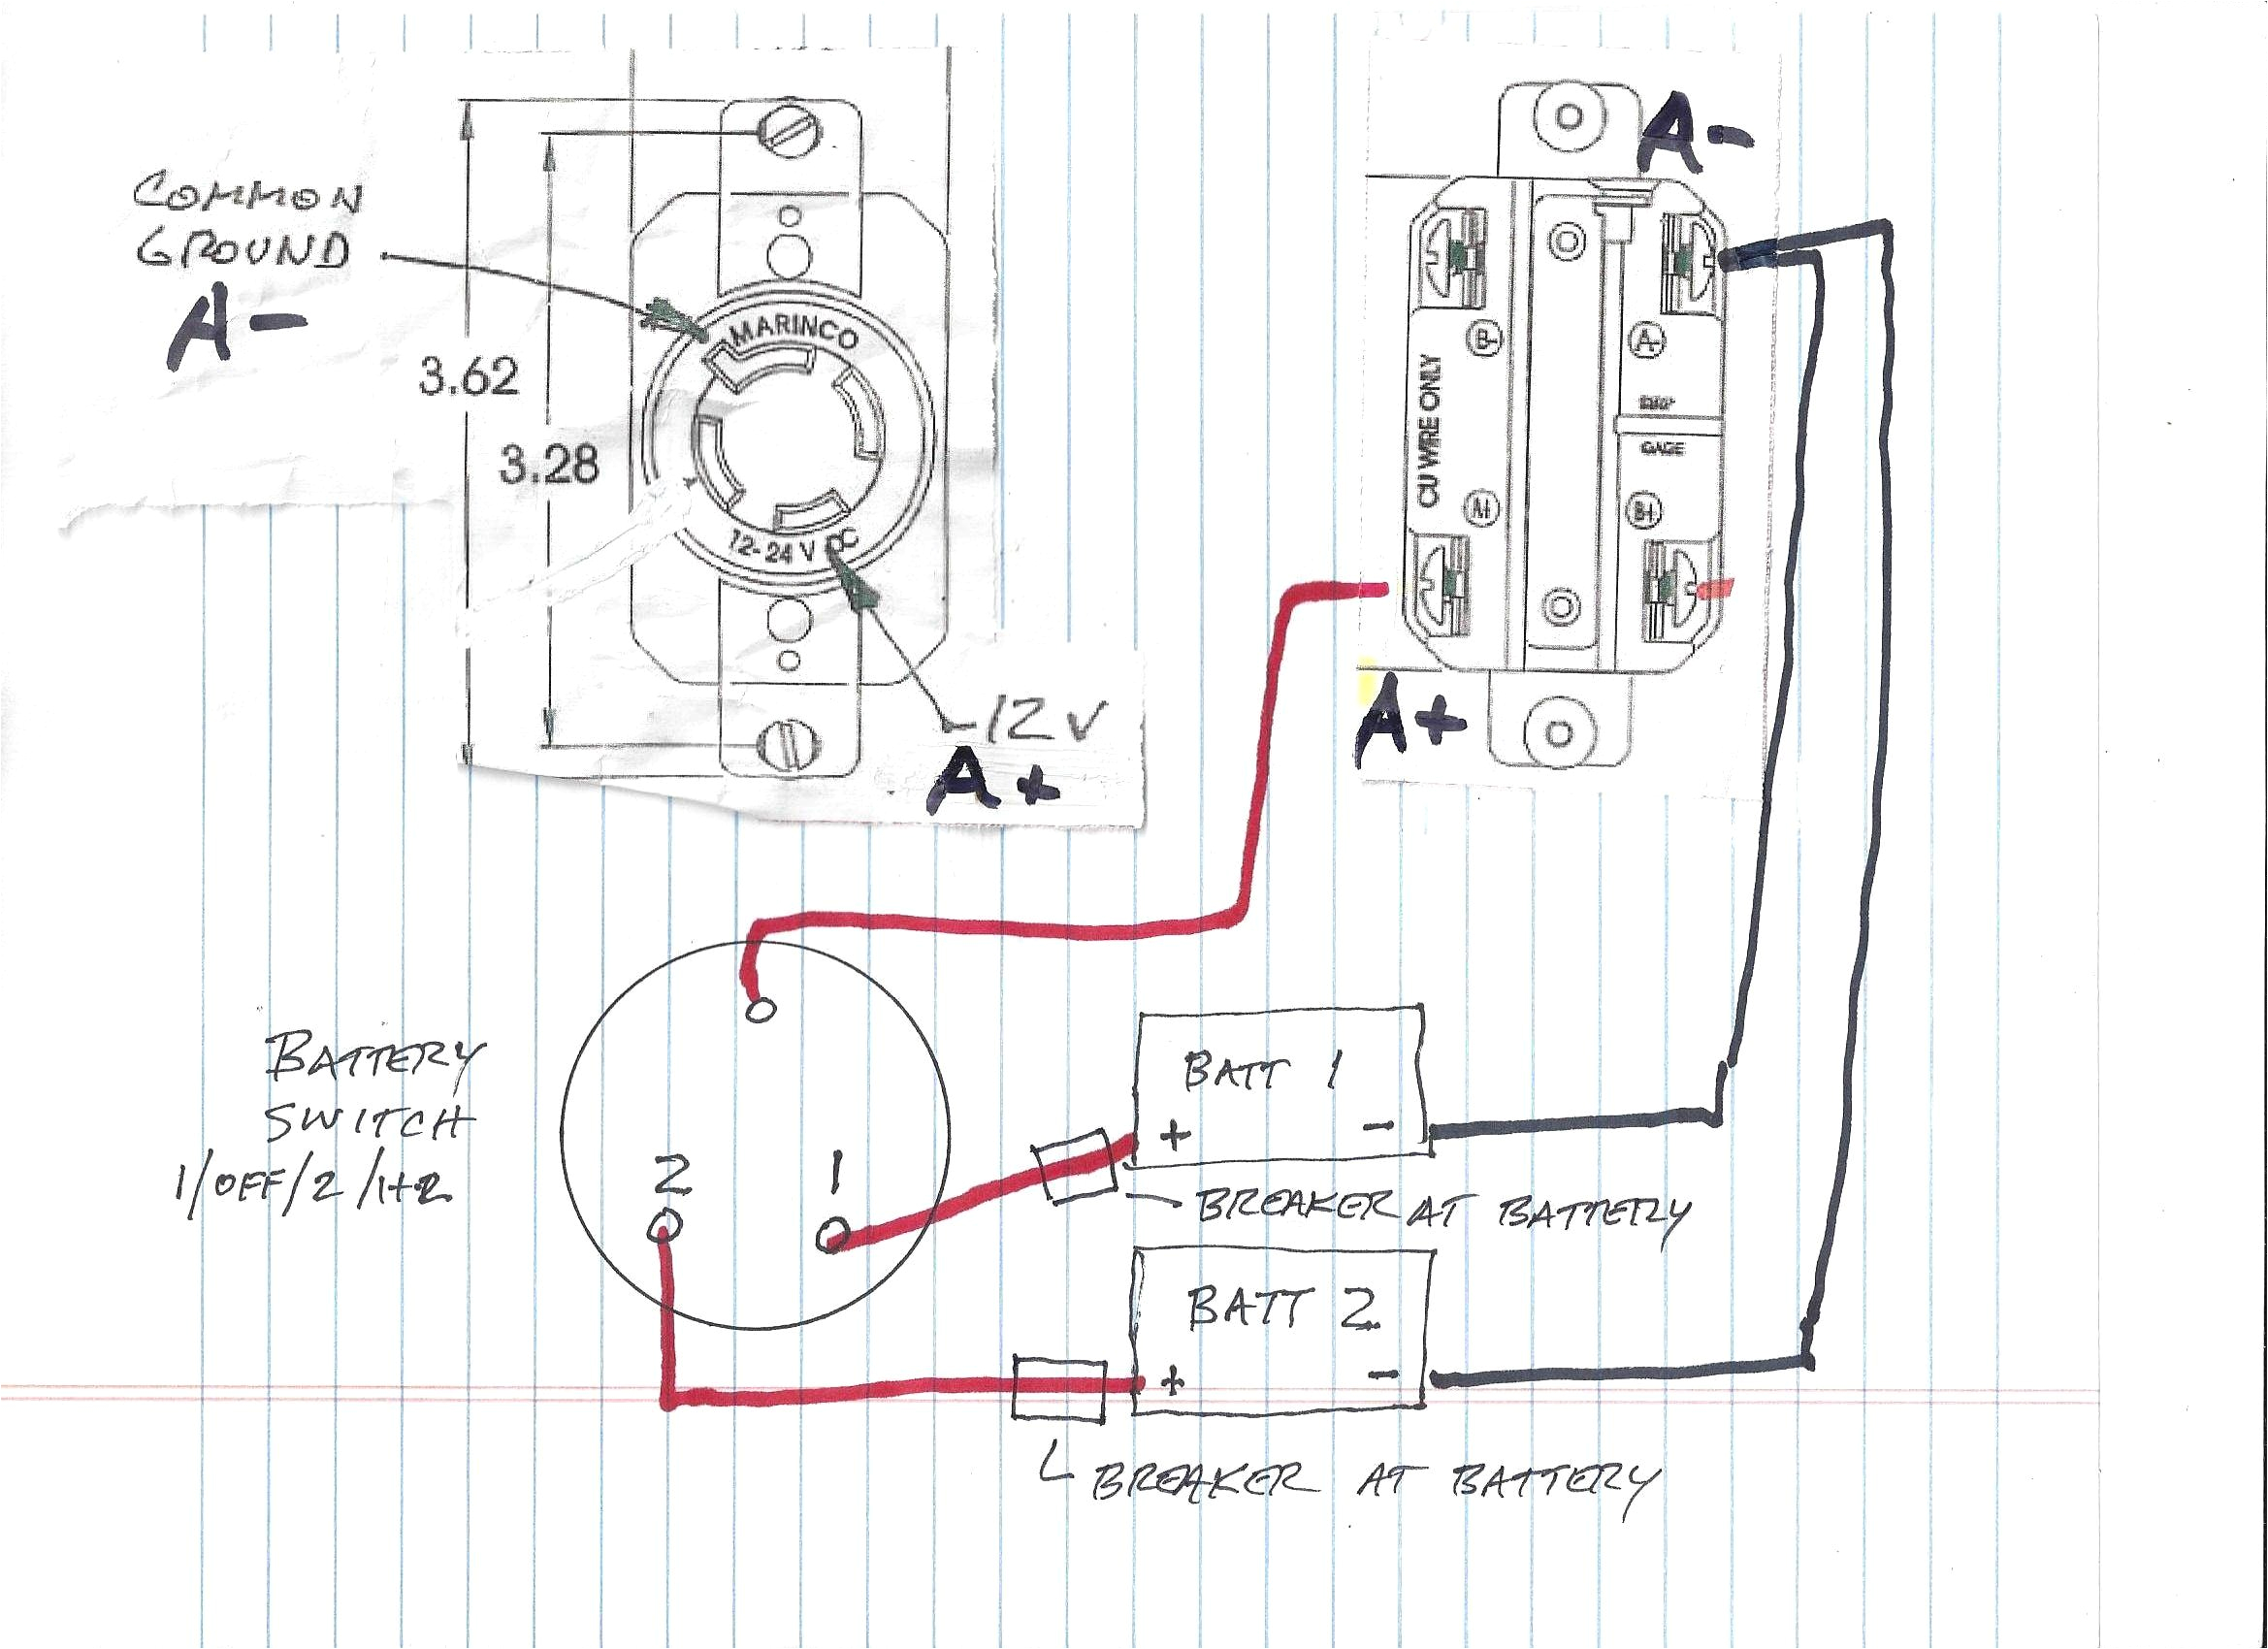 COMMON
GROUND
A-
3.62
3.28
MARINCO
12-24 V DC
-12V
A+
A-
B-
A-
CU WIRE ONLY
A+
B+
A+
BATTERY
SWITCH
1/OFF/2/1+2
2
1
BATT 1
+ -
BREAKER AT BATTERY
BATT 2
+ -
BREAKER AT BATTERY